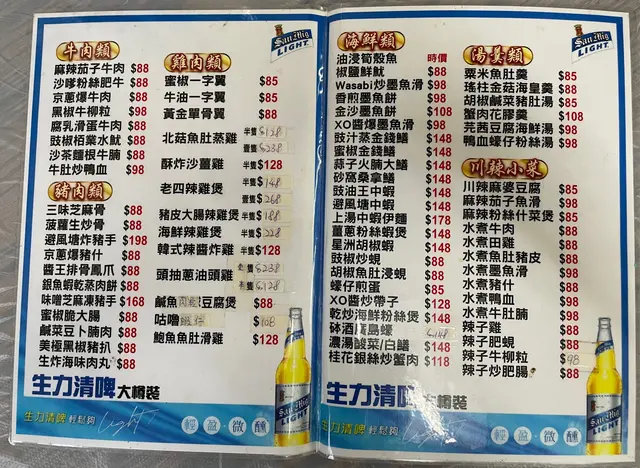 San Mig LIGHT
牛肉類
麻辣茄子牛肉 $88
沙嗲粉絲肥牛 $88
京蔥爆牛肉 $88
黑椒牛柳粒 $98
腐乳滑蛋牛肉 $88
豉椒栢葉水魷 $88
沙茶麵根牛腩 $88
牛肚炒鴨血 $98
豬肉類
三味芝麻骨 $88
菠蘿生炒骨 $88
避風塘炸豬手 $198
京蔥爆豬什 $88
醬王排骨鳳爪 $88
銀魚蝦乾蒸肉餅 $88
味噌芝麻凍豬手 $168
蜜椒脆大腸 $88
鹹菜豆卜腩肉 $88
美極黑椒豬扒 $88
生炸海味肉丸 $88
雞肉類
蜜椒一字翼 $85
牛油一字翼 $85
黃金單骨翼 $88
北菇魚肚蒸雞 半隻 $128
壹隻 $238
酥炸沙薑雞 半隻 $128
老四辣雞煲 半隻 $148
壹隻 $268
豬皮大腸辣雞煲 半隻 $188
海鮮辣雞煲 半隻 $228
韓式辣醬炸雞 半隻 $128
頭抽蔥油頭雞 $238
$128
鹹魚 豆腐煲 $88
咕嚕 $108
鮑魚魚肚滑雞 $128
生力清啤 大樽裝
生力清啤 輕鬆夠 Light
輕盈微醺
San Mig LIGHT
海鮮類
油浸筍殼魚 時價
椒鹽鮮魷 $88
Wasabi炒墨魚滑 $98
香煎墨魚餅 $98
金沙墨魚餅 $108
XO醬爆墨魚滑 $98
豉汁蒸金錢鱔 $148
蜜椒金錢鱔 $148
蒜子火腩大鱔 $148
砂窩桑拿鱔 $148
豉油王中蝦 $148
避風塘中蝦 $148
上湯中蝦伊麵 $178
薑蔥粉絲蝦煲 $148
星洲胡椒蝦 $148
豉椒炒蜆 $88
胡椒魚肚浸蜆 $88
蠔仔煎蛋 $85
XO醬炒帶子 $128
乾炒海鮮粉絲煲 $148
砵酒 島蠔 $148
濃湯酸菜/白鱔 $148
桂花銀絲炒蟹肉 $118
湯羹類
San Mig LIGHT
粟米魚肚羹 $85
瑤柱金菇海皇羹 $88
胡椒鹹菜豬肚湯 $85
蟹肉花膠羹 $108
芫茜豆腐海鮮湯 $98
鴨血蠔仔粉絲湯 $98
川辣小菜
川辣麻婆豆腐 $85
麻辣茄子魚滑 $98
麻辣粉絲什菜煲 $85
水煮牛肉 $88
水煮田雞 $88
水煮魚肚豬皮 $88
水煮墨魚滑 $98
水煮豬什 $88
水煮鴨血 $98
水煮牛肚腩 $98
辣子雞 $88
辣子肥蜆 $88
辣子牛柳粒 $98
辣子炒肥腸 $88
生力清啤 大樽裝
生力清啤 輕鬆夠 Light
輕盈微醺
San Mig LIGHT